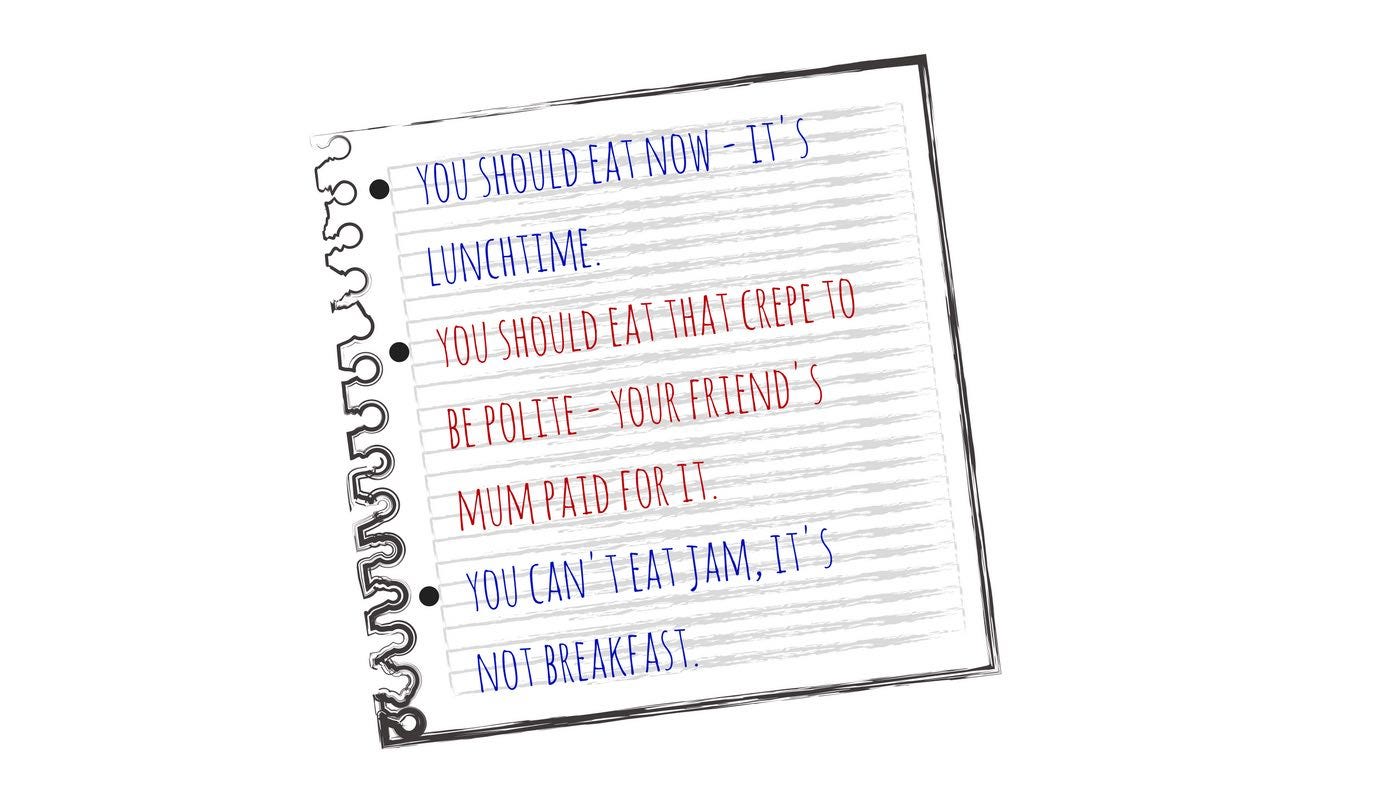 YOU SHOULD EAT NOW - IT'S
LUNCHTIME.
YOU SHOULD EAT THAT CREPE TO
BE POLITE - YOUR FRIEND'S
MUM PAID FOR IT.
YOU CAN'T EAT JAM, IT'S
NOT BREAKFAST.